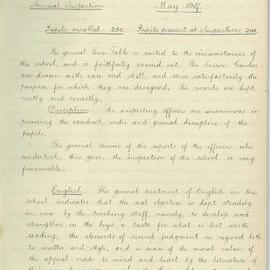 Annual Inspection May 1917.
Pupils enrolled, 250. Pupils present at Inspection 244.
The general Time-Table is suited to the circumstances of
the school, and is faithfully carried out. The Lesson Guides
are drawn with care and skill, and serve satisfactorily the
purpose for which they are designed. The records are kept
neatly and correctly.
Discipline: The inspecting officers are unanimous in
praising the conduct, order and general discipline of the
pupils.
The general tenour of the reports of the officers who
undertook, this year, the inspection of the school is very
favourable.
English: The general treatment of English in this
school indicates that the real objective is kept steadily
in view by the teaching staff, namely, to develop and
strengthen in the boys a taste for what is best worth
reading, the elements of sound judgment in regard both
to matter and style, and a sense of the moral value of
the appeal made to mind and heart by the literature of